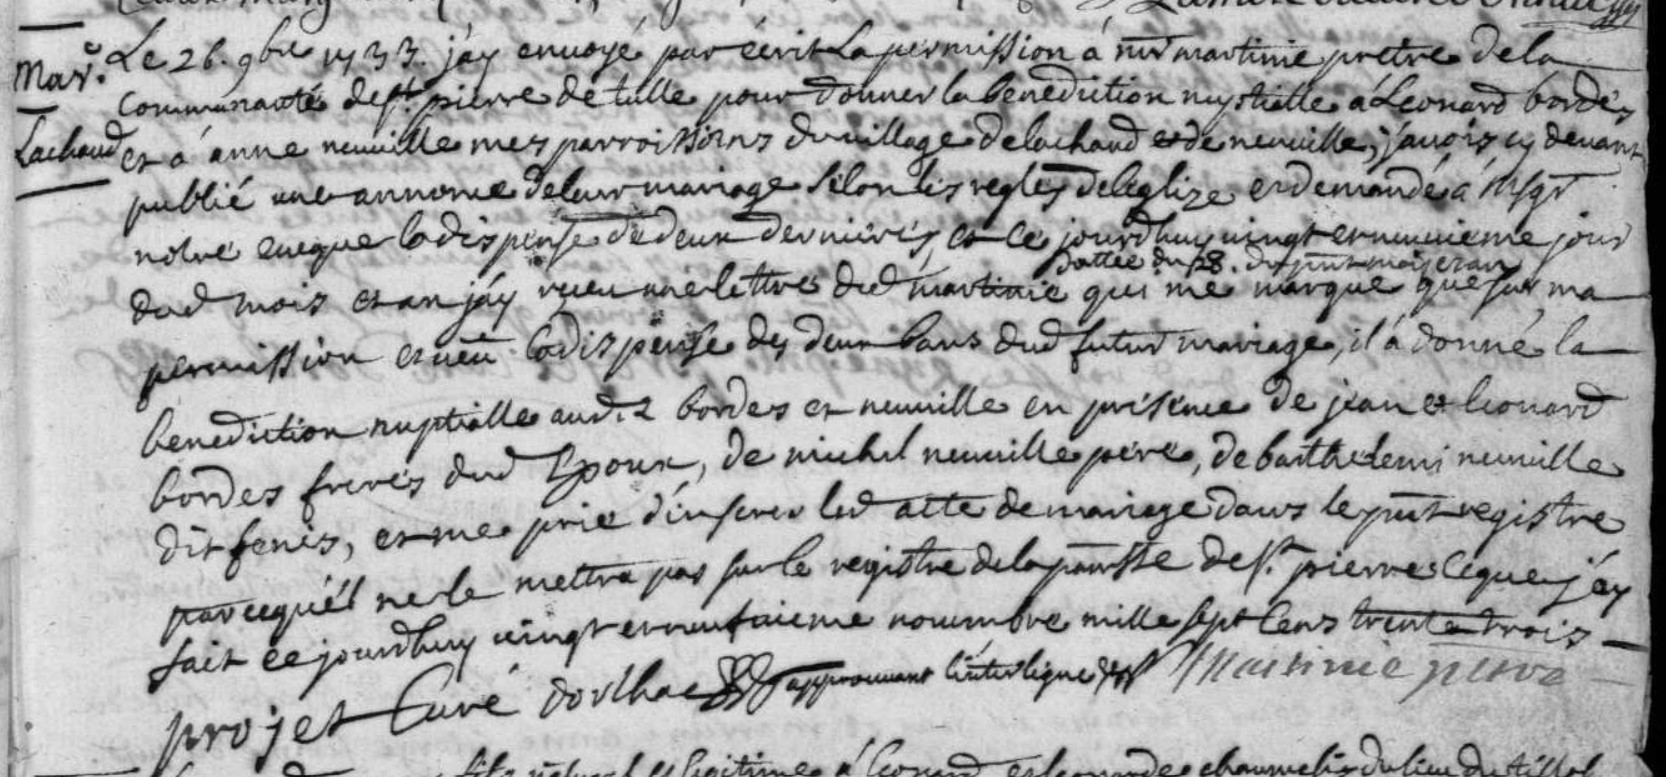 Mar.
Lachaud
Le 26. 9bre 1733. j'ay envoyé par écrit la permission á mr martinie pretre de la
communauté de st. pierre de tulle pour donner la benediction nuptialle á Leonard bordes
et á anne neuville mes parroissiens du village de lachaud et de neuville, j'avois cy devant
publié une annonce de leur mariage selon les regles de leglize et demandé á msgr
notre eveque la dispense de deux dernieres, et ce jourdhuy vingt et neuvieme jour
dattée du 28. du pnt mois et an
dud mois et an j'áy receu une lettre dud martinie qui me marque que sur ma
permission et veu la dispense des deux bans dud futur mariage, il á donné la
benediction nuptialle aud.s bordes et neuville en presence de jean et leonard
bordes freres dud Epoux, de michel neuville pere, de barthelemi neuville
dit fenis, et me prie d'inserer led acte de mariage dans le pnt registre
parcequ'el ne le mettra pas sur le registre de la parrsse de st. pierre ce que j'áy
fait ce jourdhuy vingt et neufaieme novembre mille sept cens trente trois
projet Curé dorlhac approuvant l'interligne Martinie pretre
fils naturel et legitime á leonard et leonarde chaumeils du lieu du